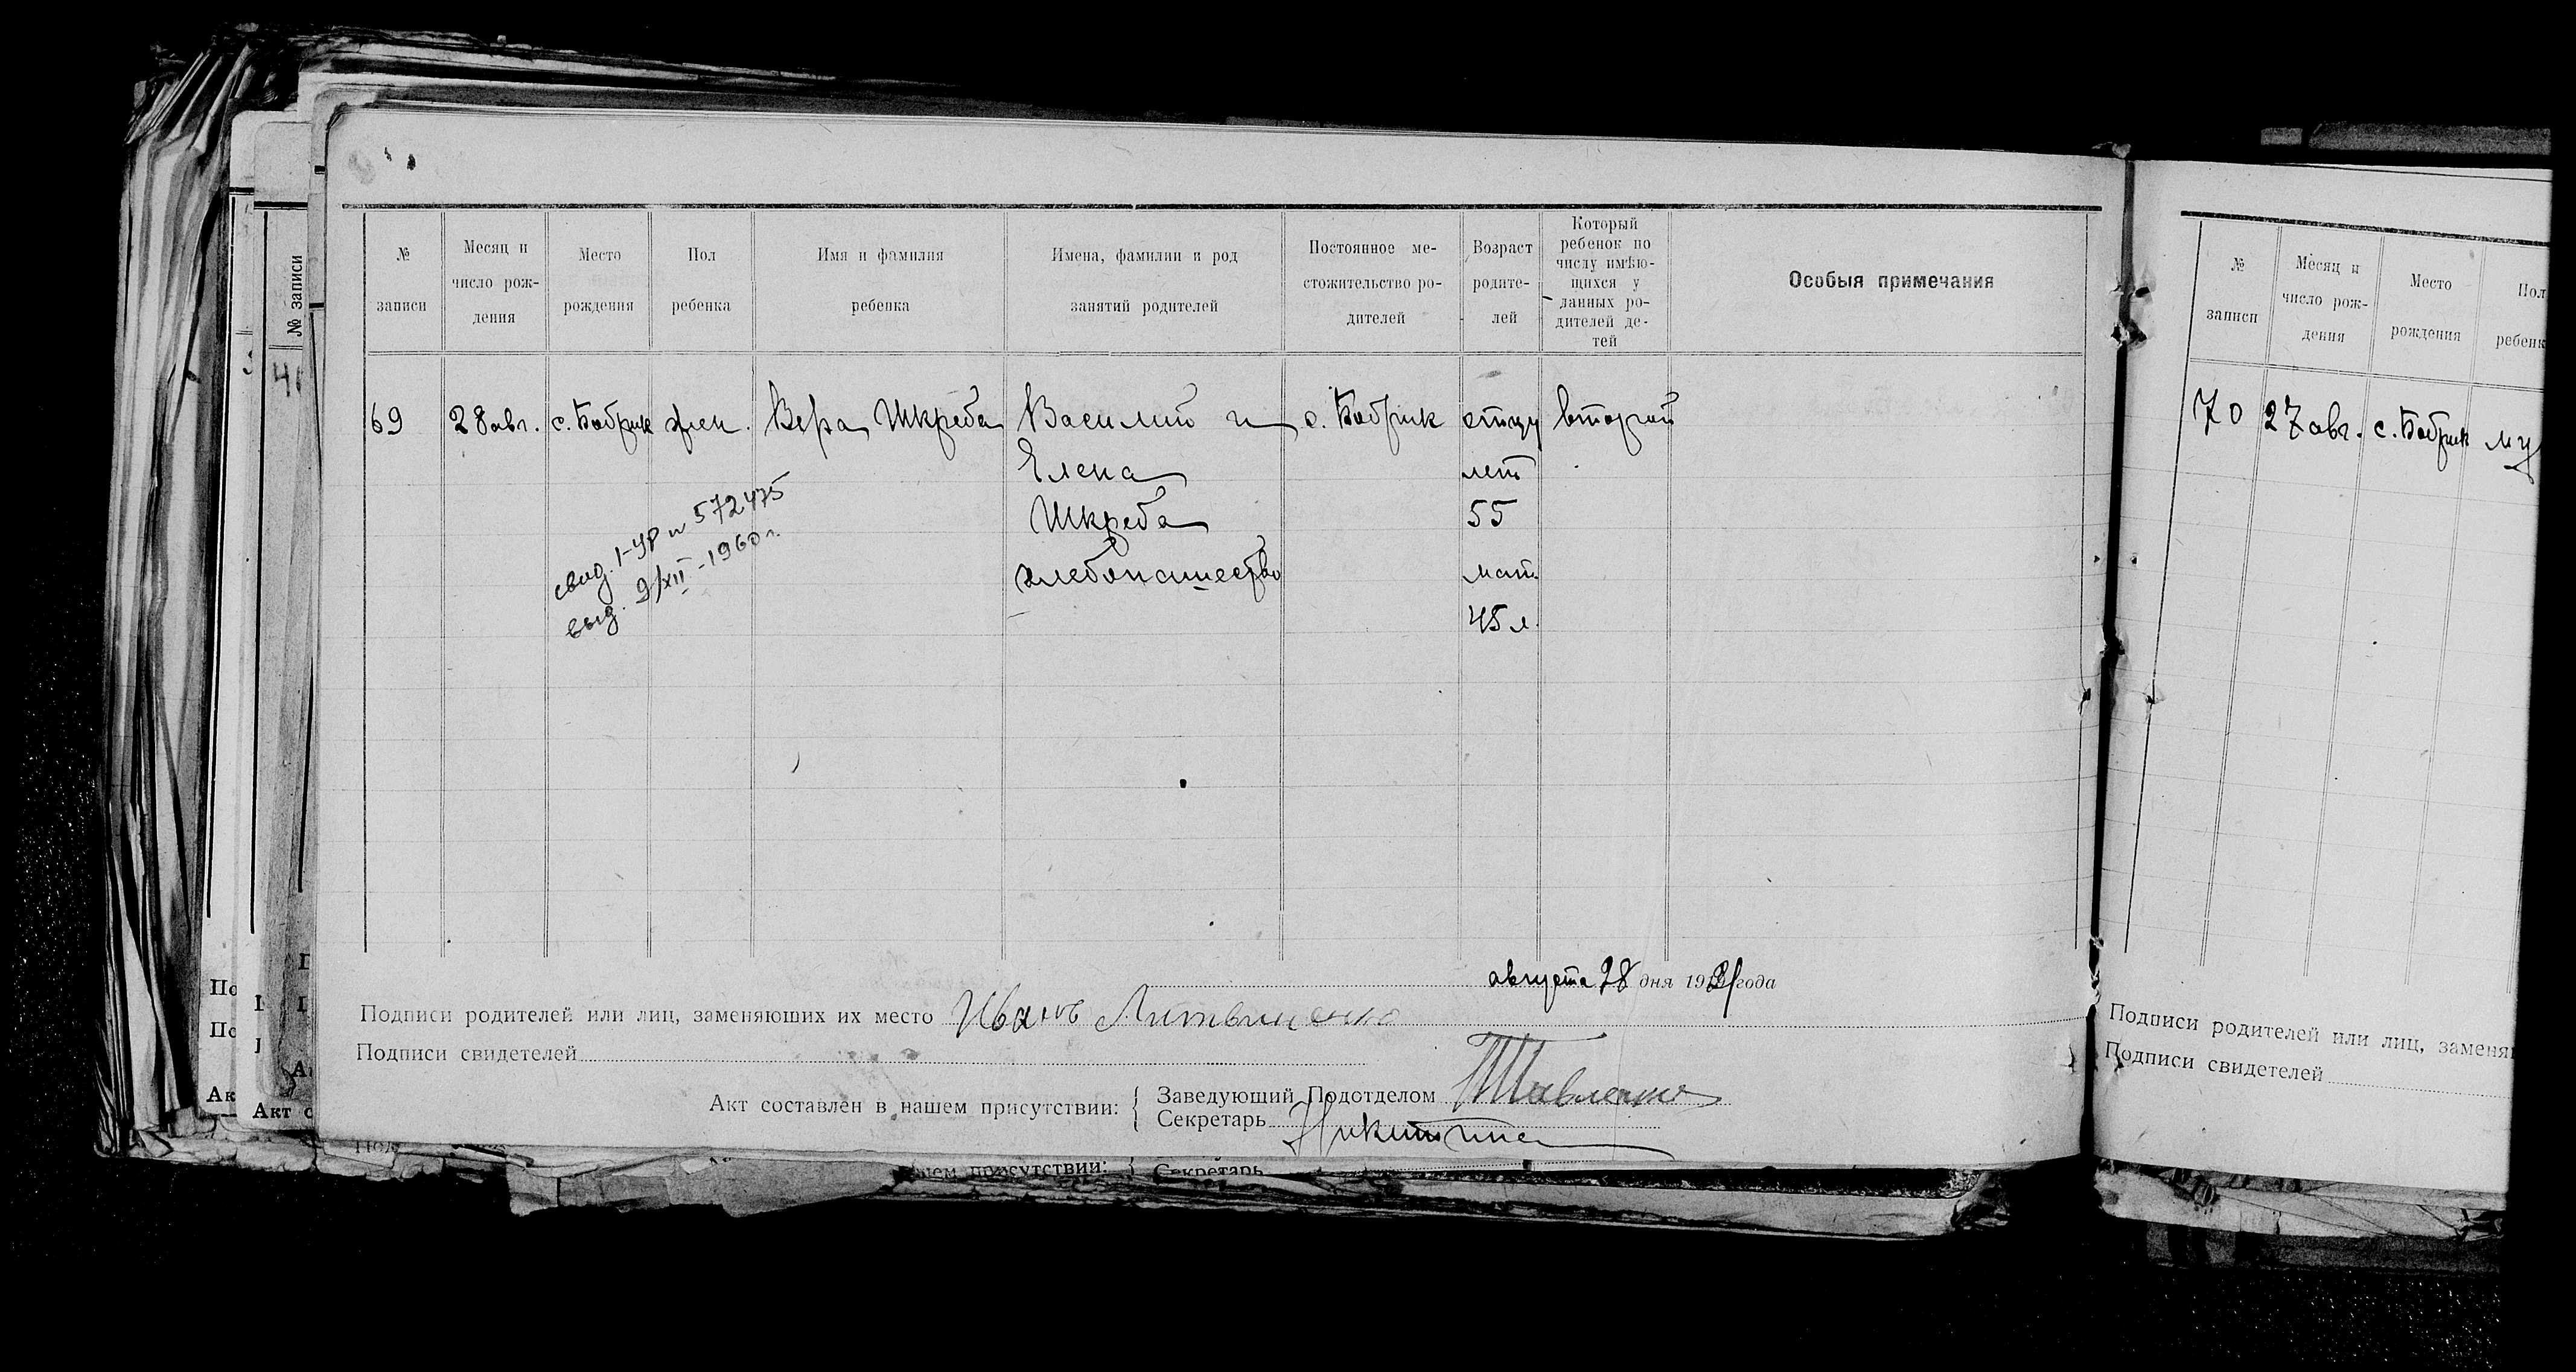 № записи
Месяц и число рождения
Место рождения
Пол ребенка
Имя и фамилия ребенка
Имена, фамилии и род занятий родителей
Постоянное местожительство родителей
Возраст родителей
Который ребенок по числу имѣющихся у данных родителей детей
Особыя примечания
69
28 авг.
с. Бобрик
жен.
Вера Шкреба
Василий и
Елена
Шкреба
хлебопашество
с. Бобрик
отцу
лет
55
мат.
45 л.
второй
свид. I-УР № 572475
выд. 9/XII-1960 г.
августа 28 дня 1921 года
Подписи родителей или лиц, заменяюших их место Иванъ Литвиненко
Подписи свидетелей
Акт составлен в нашем присутствии:
Заведующий Подотделом
Секретарь
№ записи
Месяц и число рождения
Место рождения
Пол ребенк
70
27 авг.
с. Бобрик
му
Подписи родителей или лиц, заменя
Подписи свидетелей
№ записи
По
По
Ак
Акт с
нем присутствии:
Секретарь